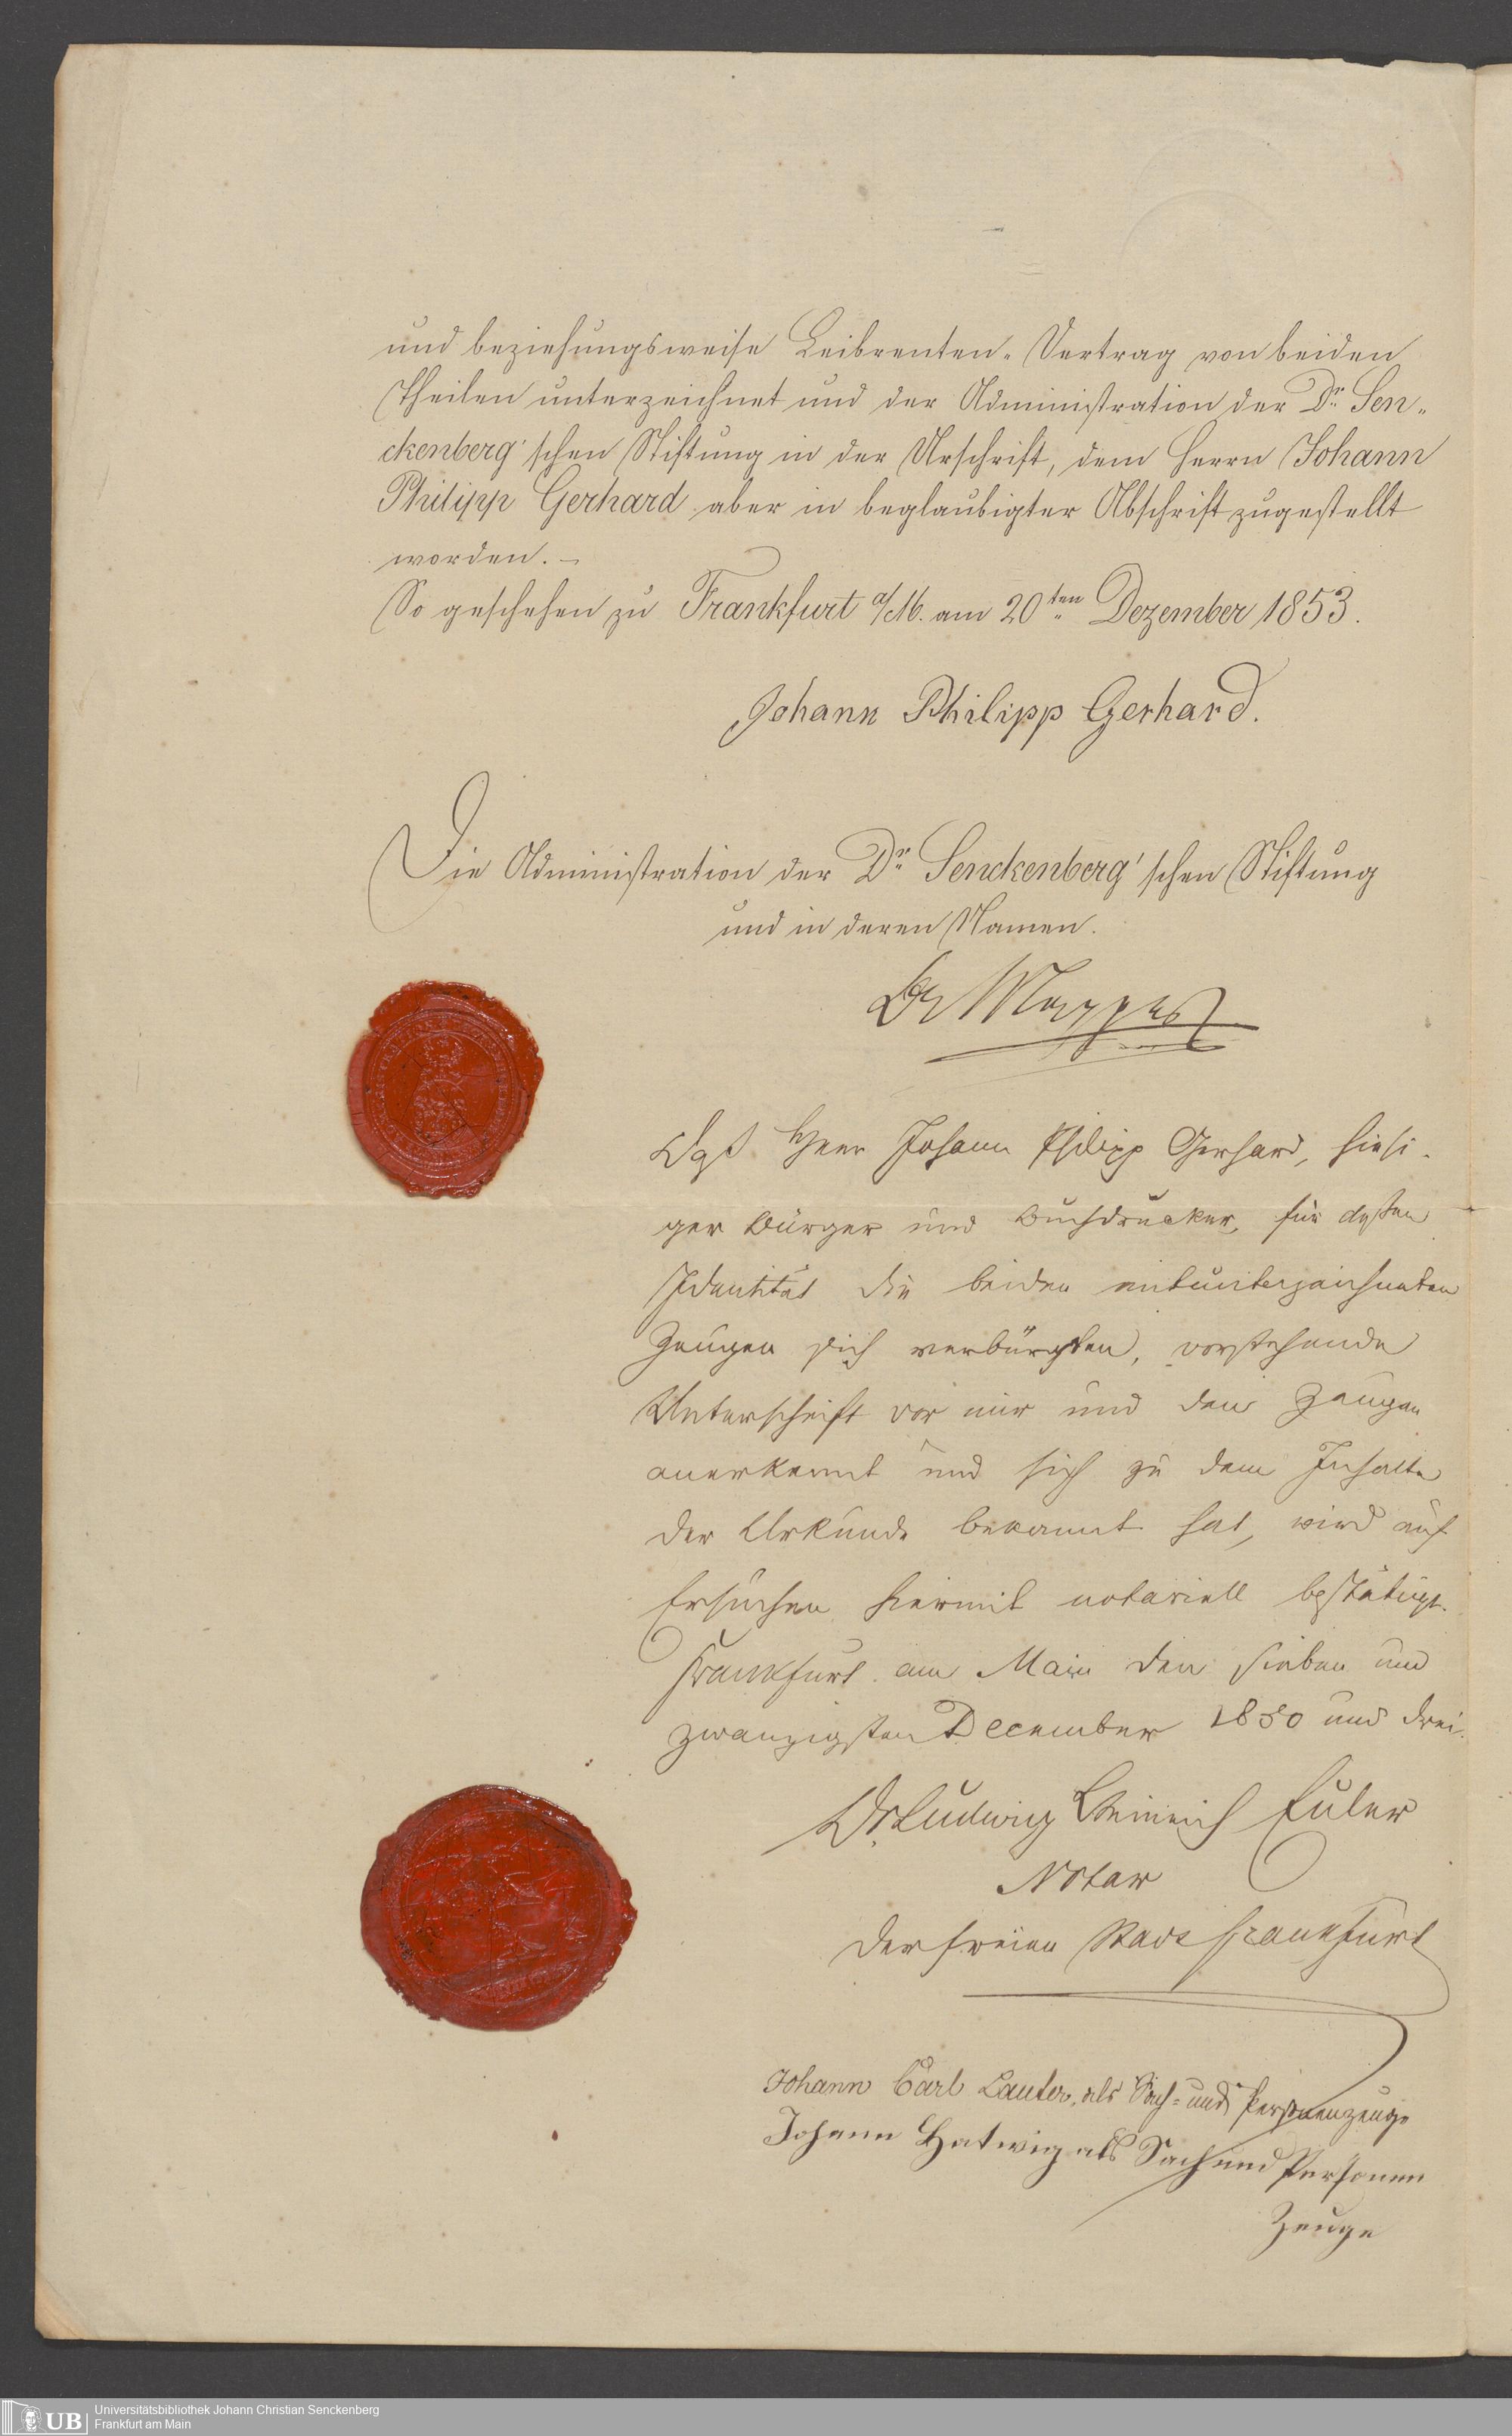 und beziehungsweise Leibrenten-Vertrag von beiden
Theilen unterzeichnet und der Administration der Dr. Sen-
ckenberg'schen Stiftung in der Urschrift, dem Herrn Johann
Philipp Gerhard aber in beglaubigter Abschrift zugestellt
worden. –
So geschehen zu Frankfurt a/M. am 20ten Dezember 1853.
Johann Philipp Gerhard.
Die Administration der Dr. Senckenberg'schen Stiftung
und in deren Namen.
Dr Mappes
Daß Herr Johann Philipp Gerhard, hiesi-
ger Bürger und Buchdrucker, für dessen
Identität die beiden mitunterzeichneten
Zeugen sich verbürgten, vorstehende
Unterschrift vor mir und den Zeugen
anerkannt und sich zu dem Inhalte
der Urkunde bekannt hat, wird auf
Ersuchen hiermit notariell bestätigt.
Frankfurt am Main den sieben und
zwanzigsten December 1850 und drei.
Dr. Ludwig Heinrich Euler
Notar
der freien Stadt Frankfurt
Johann Carl Lauter, als Sach- und Personenzeuge
Johann Hatwig als Sach und Personen
Zeuge
UB
Universitätsbibliothek Johann Christian Senckenberg
Frankfurt am Main